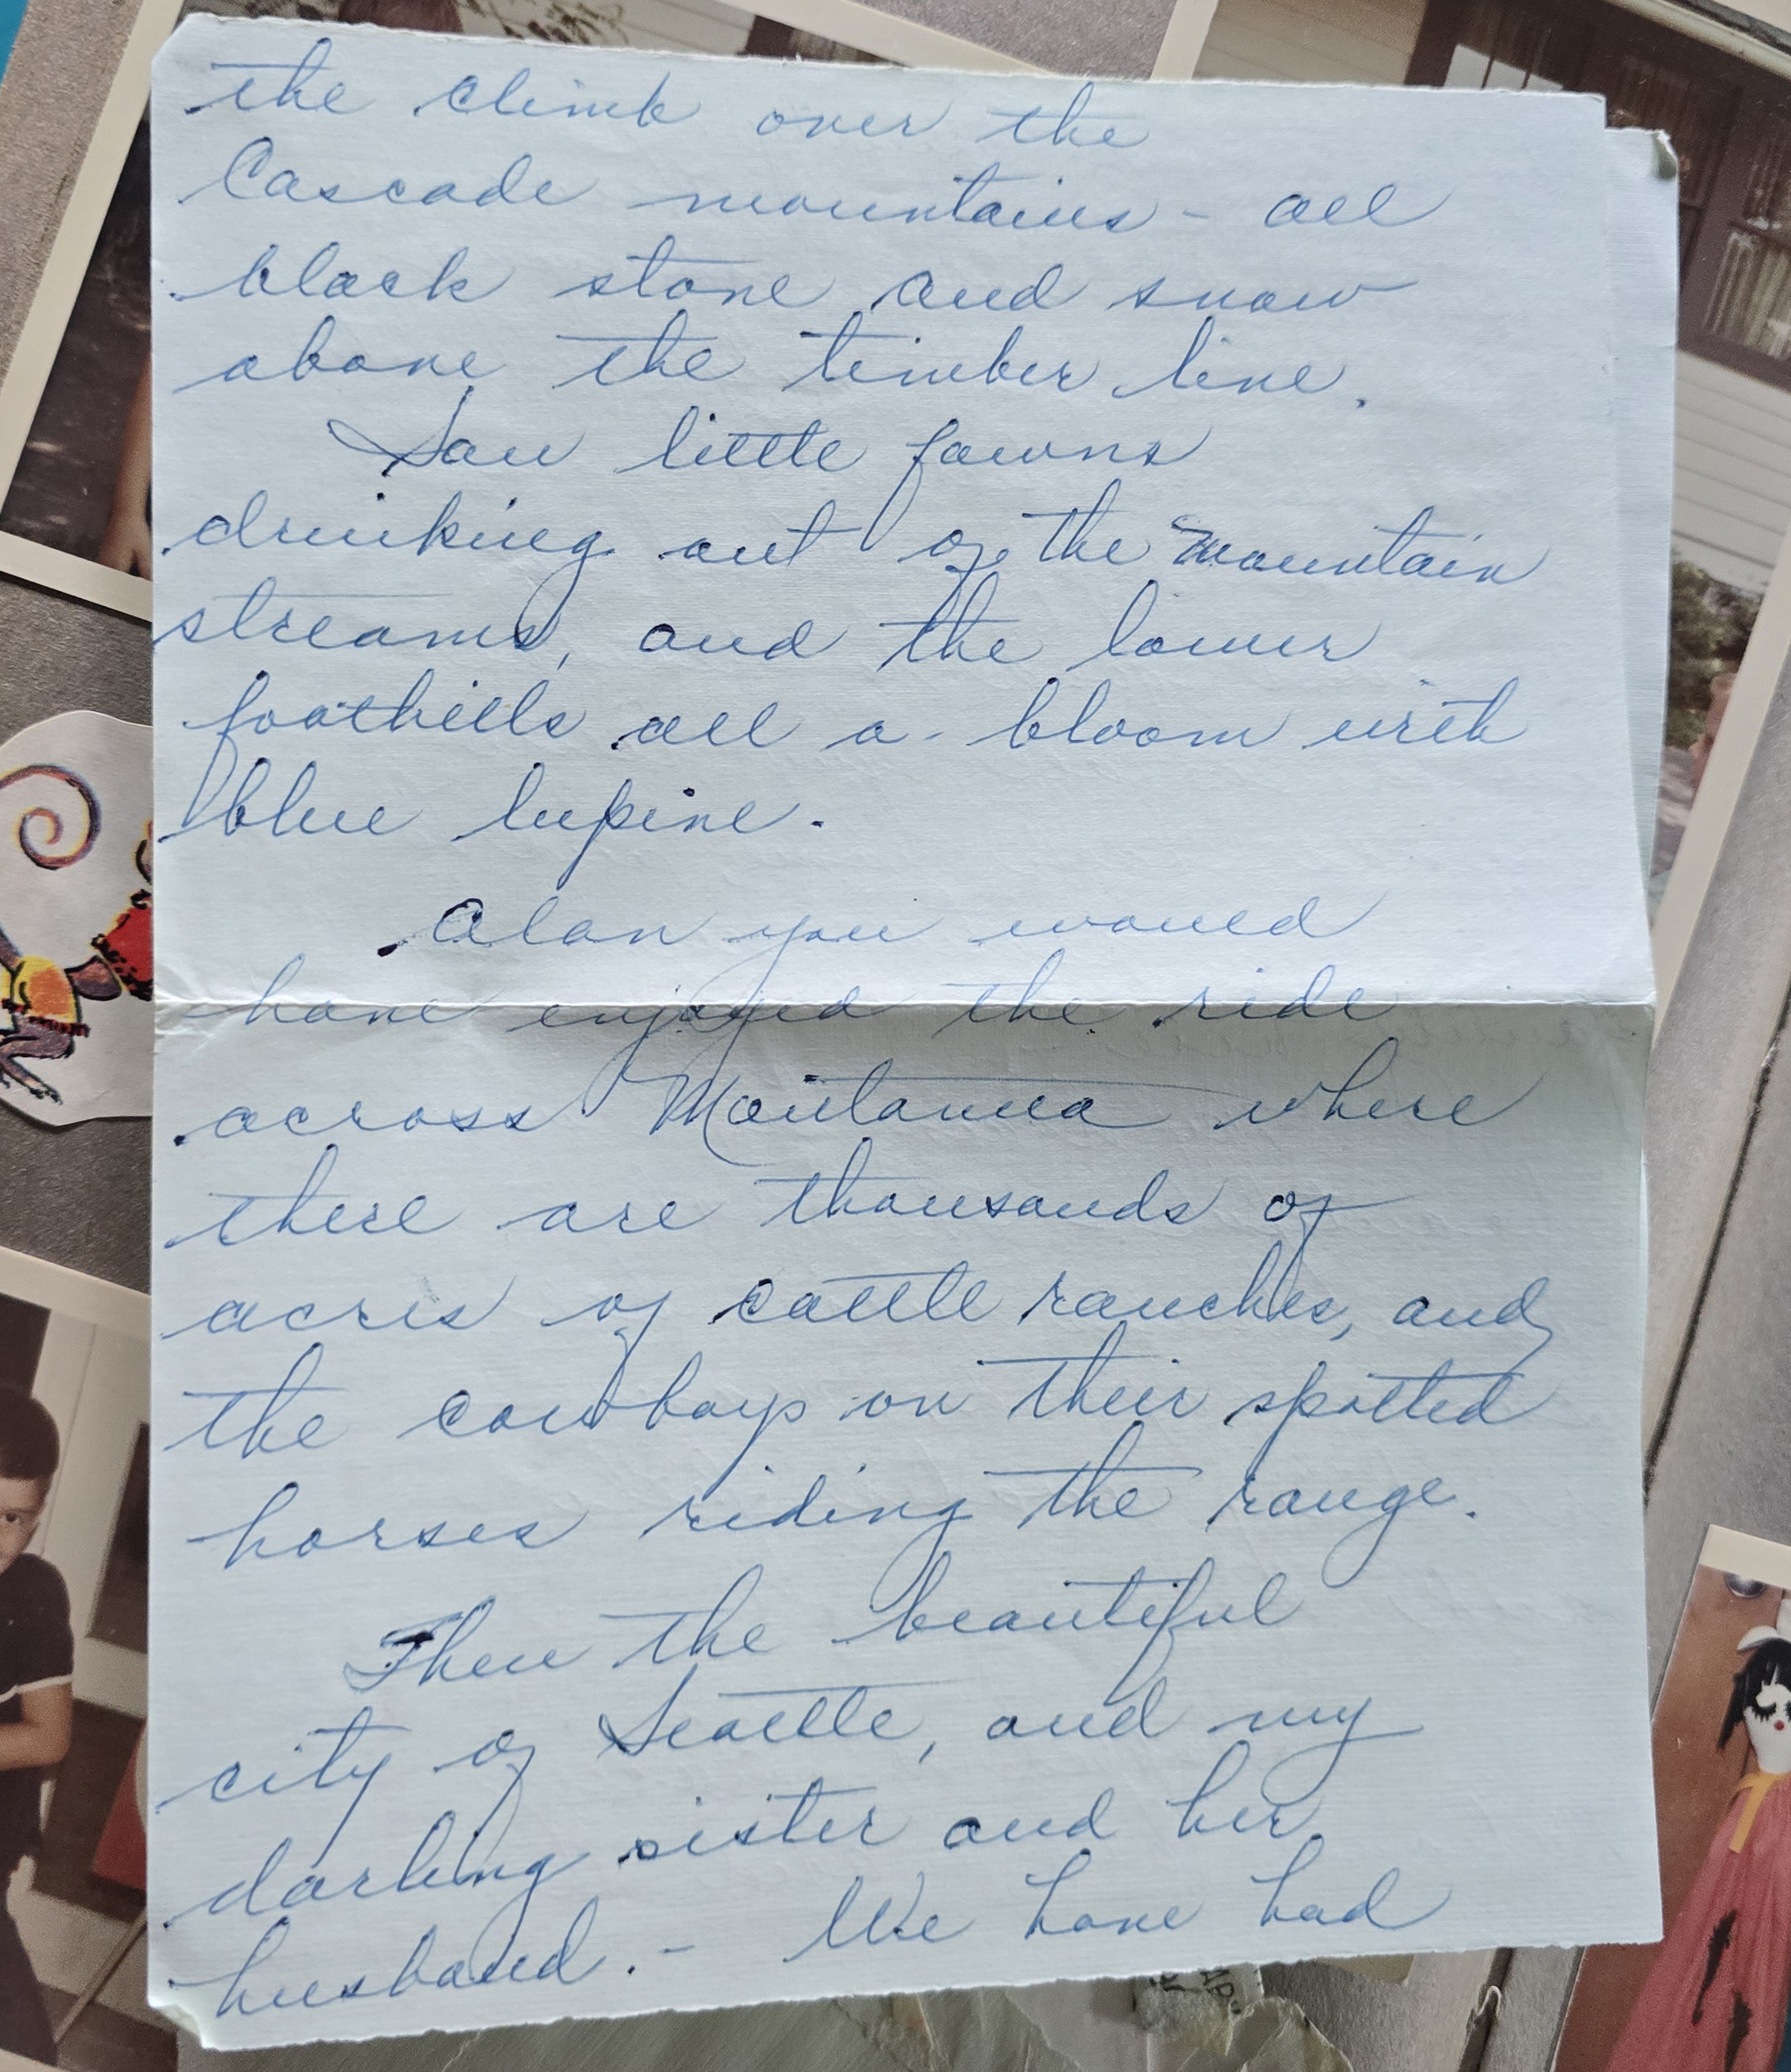 the climb over the
Cascade mountains - all
black stone and snow
above the timber line.
Saw little fawns
drinking out of the mountain
streams, and the lower
foothills all a-bloom with
blue lupine.
Alan you would
have enjoyed the ride
across Montanna where
there are thousands of
acres of cattle ranches, and
the cowboys on their spotted
horses riding the range.
Then the beautiful
city of Seattle, and my
darling sister and her
husband. - We have had